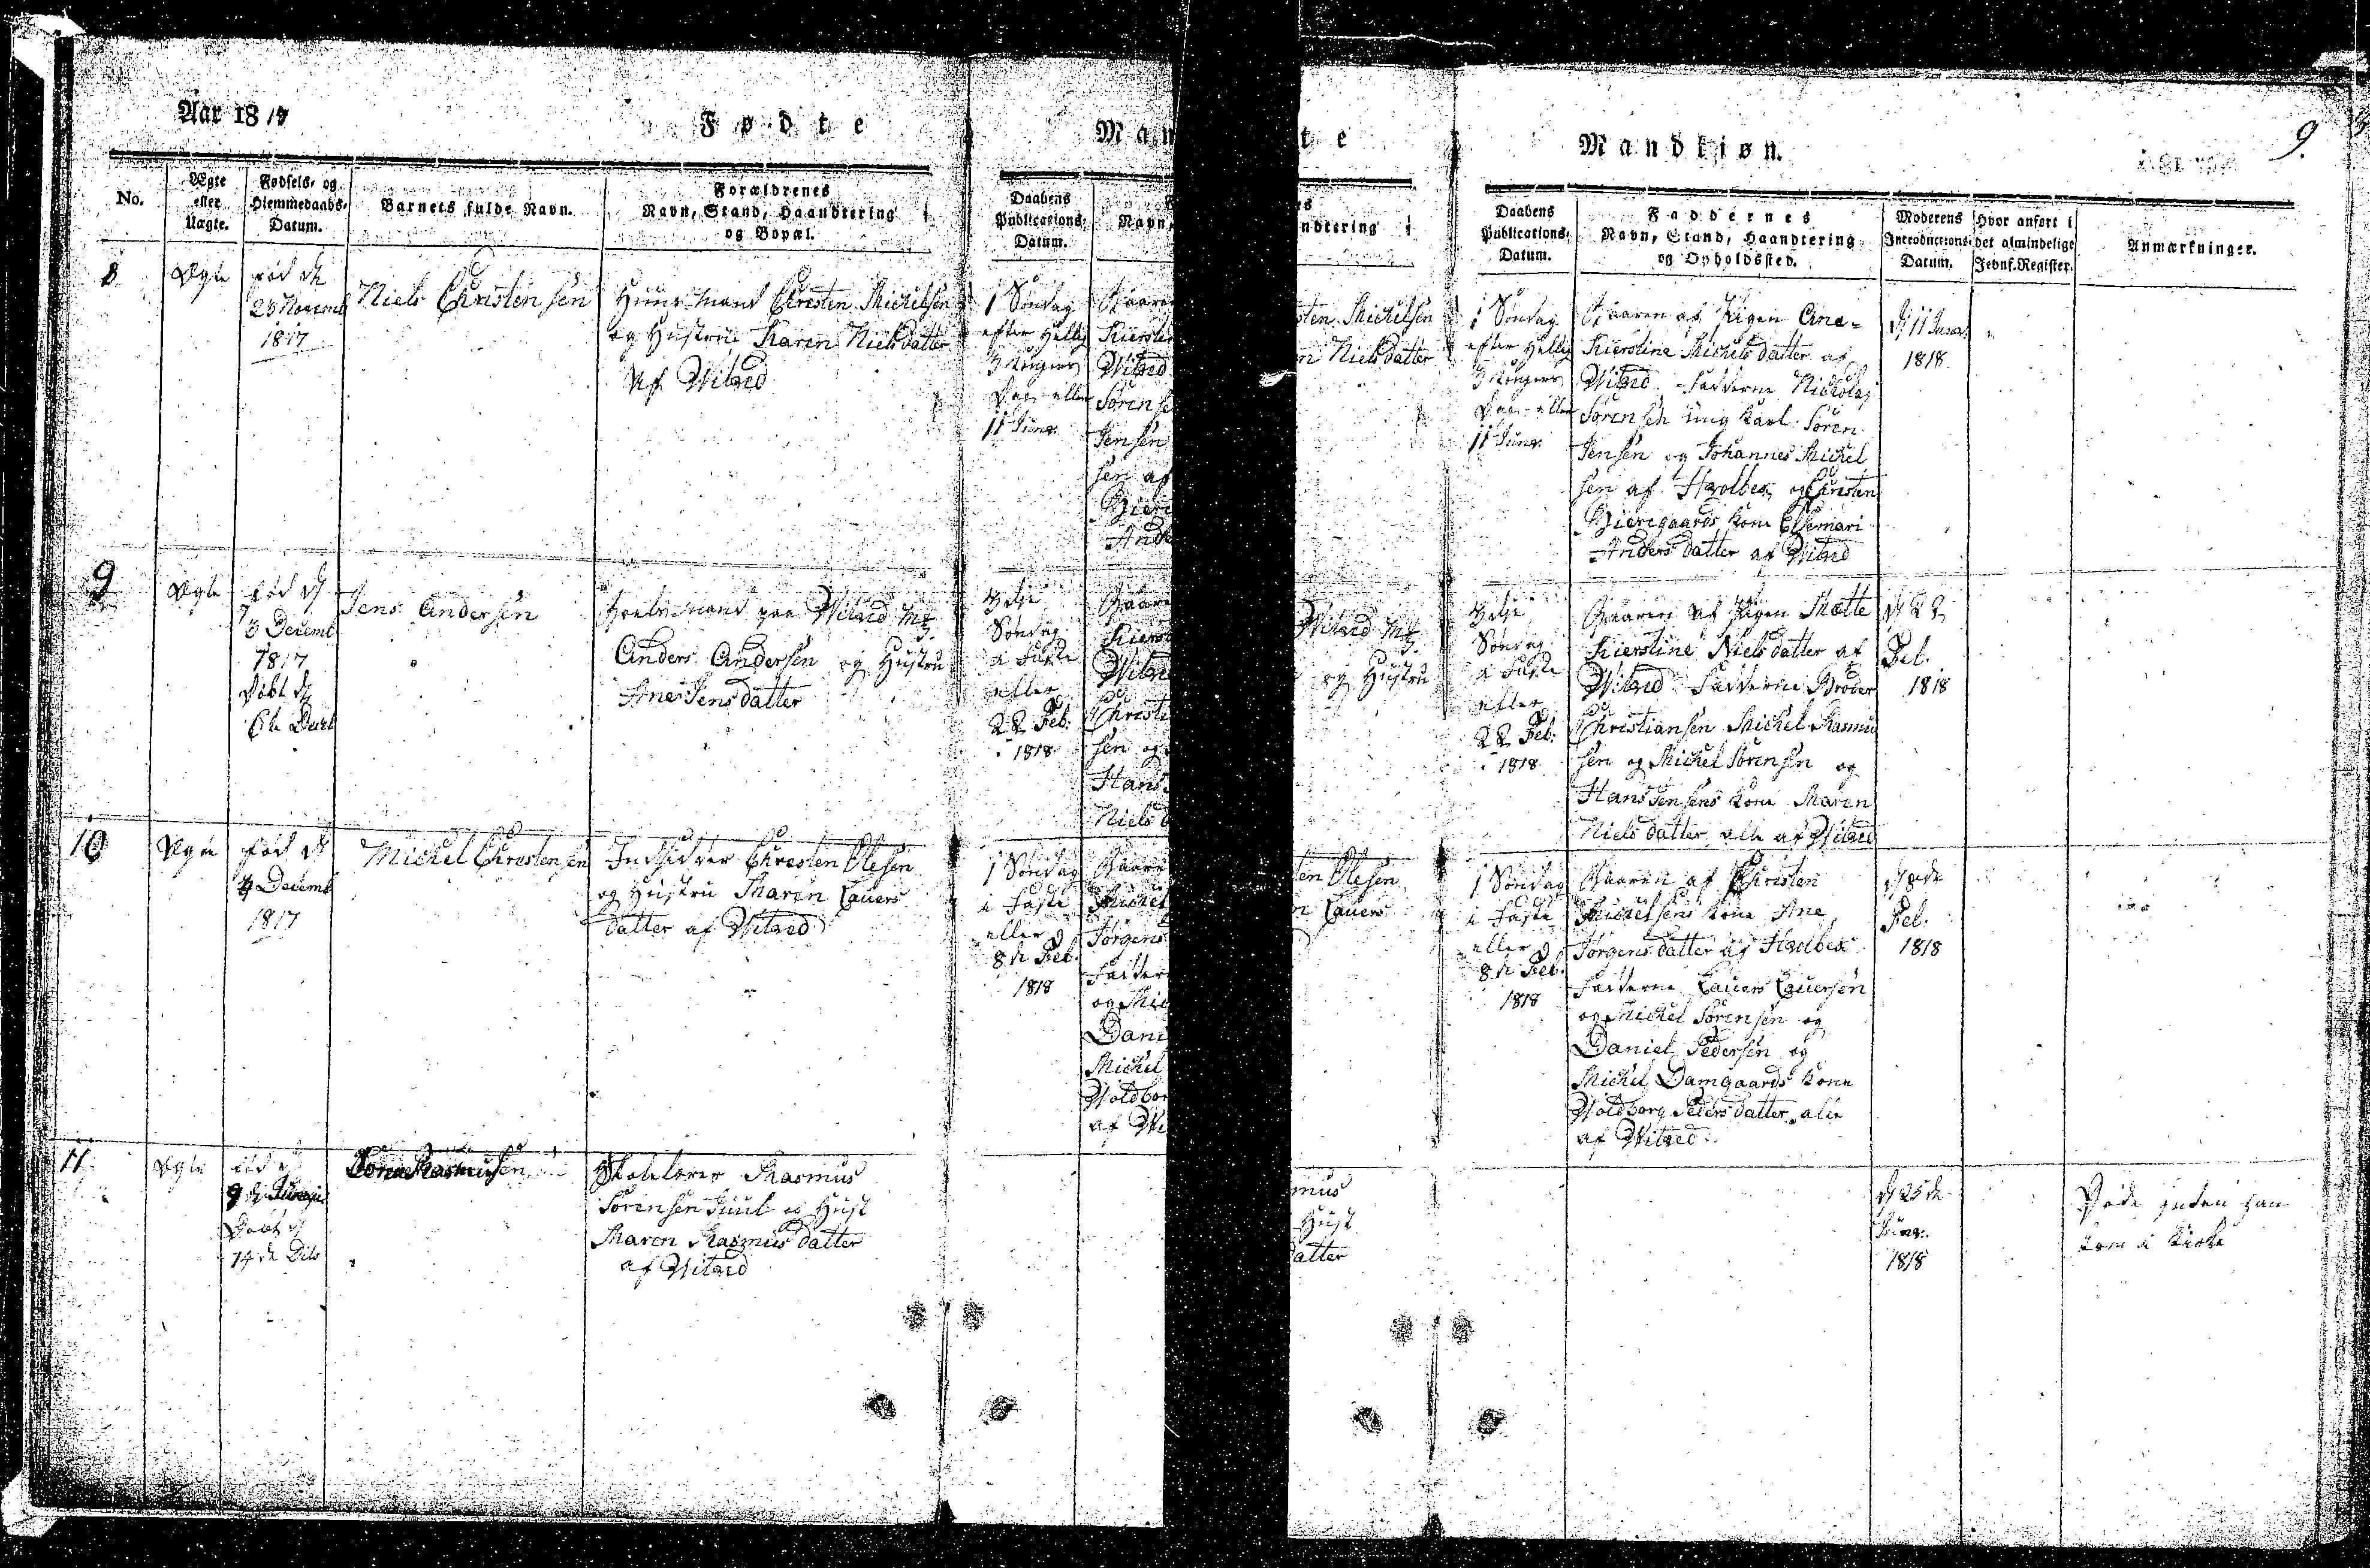 Aar 1817
Fødte
Mandkiøn.
9.
No.
Ægte
eller
Uægte.
Fødsels- og
Hiemmedaabs-
Datum.
Barnets fulde Navn.
Forældrenes
Navn, Stand, Haandtering
og Bopæl.
Daabens
Publications-
Datum.
Faddernes
Navn, Stand, Haandtering
og Opholdssted.
Moderens
Introductions-
Datum.
Hvor anført i
det almindelige
Jevnf. Register.
Anmærkninger.
8
Ægte
fød d
23 Novemb
1817
Niels Christensen
Huusmand Christen Michelsen
og Hustrue Karen Nielsdatter
af Vitved
1 Søndag
efter Hellig
3 Kongers
Dag eller
11 Junr.
Baaren af Pigen Ane
Kierstine Michelsdatter af
Vitved Fadderne Nickolaj
Sørensen ung Karl Søren
Jensen og Johannes Michel
sen af Havlbek og Christen
Bieregaards Kone Elsemari
Andersdatter af Vitved
d 11 Junr
1818
9
Ægte
fød d
3 Decemb
1817
Døbt d
Jens Andersen
mand paa Vitved M
Anders Andersen og Hustru
Ane Jensdatter
Søndag
i Faste
eller
22 Feb.
1818
Baaren af Pigen Mætte
Kierstine Nielsdatter af
Vitved Fadderne Broder
Christiansen Michel Rasmu
sen og Michel Sørensen og
Hans Jensens Kone Maren
Nielsdatter alle af Vitved
d 22
Feb.
1818
10
Ægte
fød d
4 Decemb
1817
Michel Christensen
Indsidder Christen Olesen
og Hustru Maren Lauers
datter af Vitved
1 Søndag
i Faste
eller d
8de Feb.
1818
Baaren af Christen
Michelsens Kone Ane
Jørgensdatter af Havlbek
Fadderne Lauers Lauersen
og Michel Sørensen og
Daniel Pedersen og
Michel Damgaards Kone
Voldborg Pedersdatter alle
af Vitved
d 8de
Feb.
1818
11
Ægte
fød d
9 d
Døbt d
14de Dito
Søren Rasmusen
Skolelærer Rasmus
Sørensen Juul og Hust
Maren Rasmusdatter
af Vitved
d 25de
1818
Døde inden han
kom i Kirke